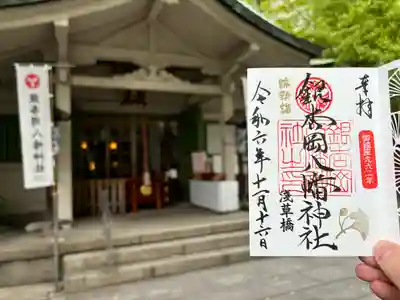 銀杏岡八幡神社
奉拝
御鎮座九六二年
銀杏岡八幡神社
浅草橋
令和六年十一月十六日